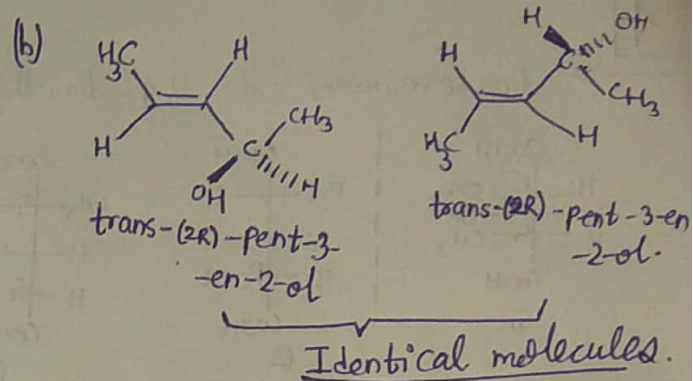 (b)
H₃C H
H C CH₃
OH H
trans-(2R)-pent-3-
-en-2-ol
H OH
H C CH₃
H₃C H
trans-(2R)-pent-3-en
-2-ol.
Identical molecules.